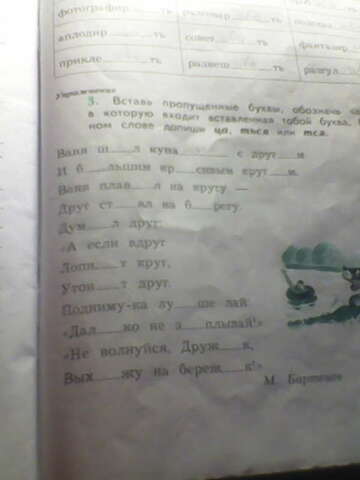 фотографир ть разговар ть
аплодир ть совет ть фантазир
прикле ть развеш ть разгул
Упражнение
3. Вставь пропущенные буквы, обозначь ча
в которую входит вставленная тобой буква.
ном слове допиши ца, ться или тса.
Ваня ш__л купа____ с друг__м
И б__льшим кр__сивым круг__м.
Ваня плав__л на кругу —
Друг ст__ял на б__регу.
Дум__л друг:
«А если вдруг
Лопн__т круг,
Утон__т друг.
Подниму-ка лу__ше лай:
«Дал__ко не з__плывай!»
«Не волнуйся, Друж__к,
Вых__жу на береж__к!»
М.